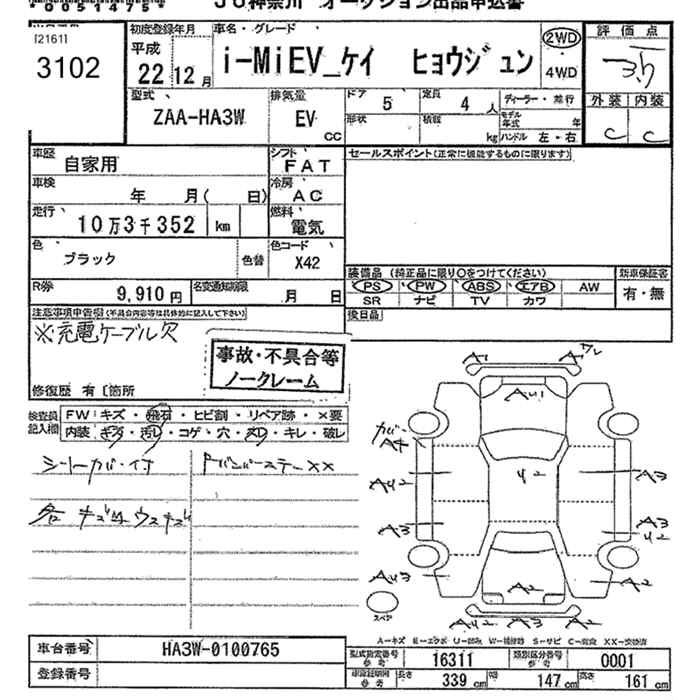 00051475
JU神奈川 オークション出品申込書
[2161]
3102
初度登録年月
平成
22 12 月
車名・グレード
i-MiEV_ケイ ヒョウジュン
2WD
・
4WD
評価点
3.5
外装 内装
C C
型式
ZAA-HA3W
排気量
EV
CC
ドア
5
定員
4 人
形状
積載
kg
ディーラー・並行
モデル年式 年
ハンドル 左・右
車歴
自家用
シフト
FAT
セールスポイント(正常に機能するものに限ります)
車検
年 月( 日)
冷房
AC
走行
10万3千352 km
燃料
電気
色
ブラック
色替
色コード
X42
装備品 (純正品に限り○をつけてください)
新車保証書
PS PW ABS エアB AW
SR ナビ TV カワ
有・無
R券
9,910 円
名変通知期限
月 日
後日品
注意事項申告欄(不具合内容等は具体的に記入して下さい)
※充電ケーブル欠
事故・不具合等
ノークレーム
修復歴 有〔箇所
検査員
記入欄
FW キズ・飛石・ヒビ割・リペア跡・×要
内装 キズ・汚レ・コゲ・穴・スレ・キレ・破レ
シートカバー付
A1
A
AU1
A4
AU2
A3
AU3
U2
A3
A3
U2
A2
A2
スペア
A-キズ E-エクボ U-凹み W-補修跡 S-サビ C-腐食 XX-交換済
車台番号
HA3W-0100765
登録番号
型式指定番号
参考
16311
類別区分番号
参考
0001
参考
長さ
339 cm
巾
147 cm
高さ
161 cm